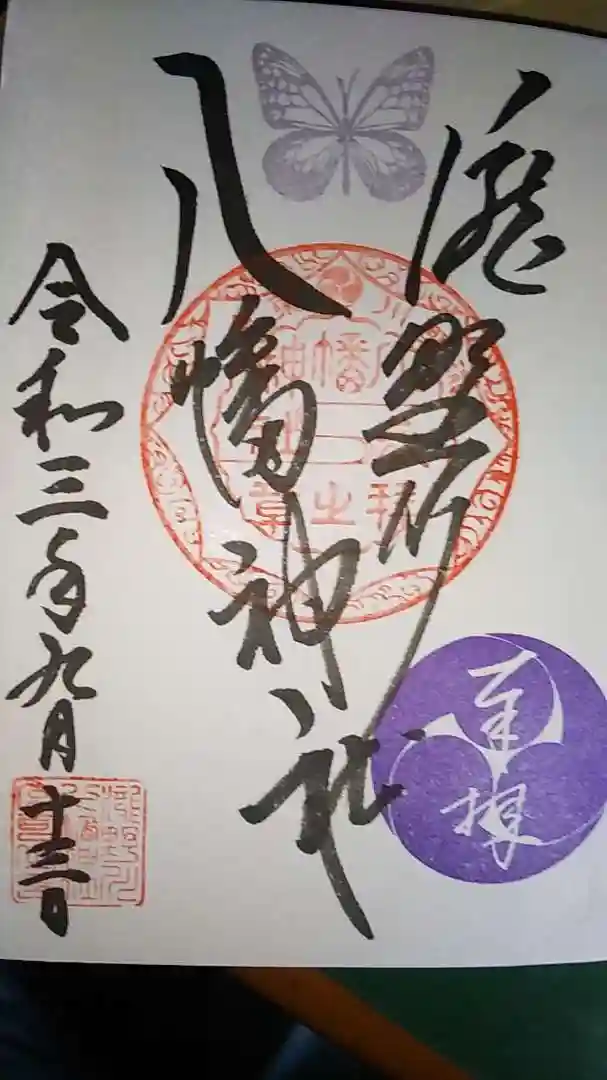 滝野川
八幡神社
令和三年九月十三日
奉拝